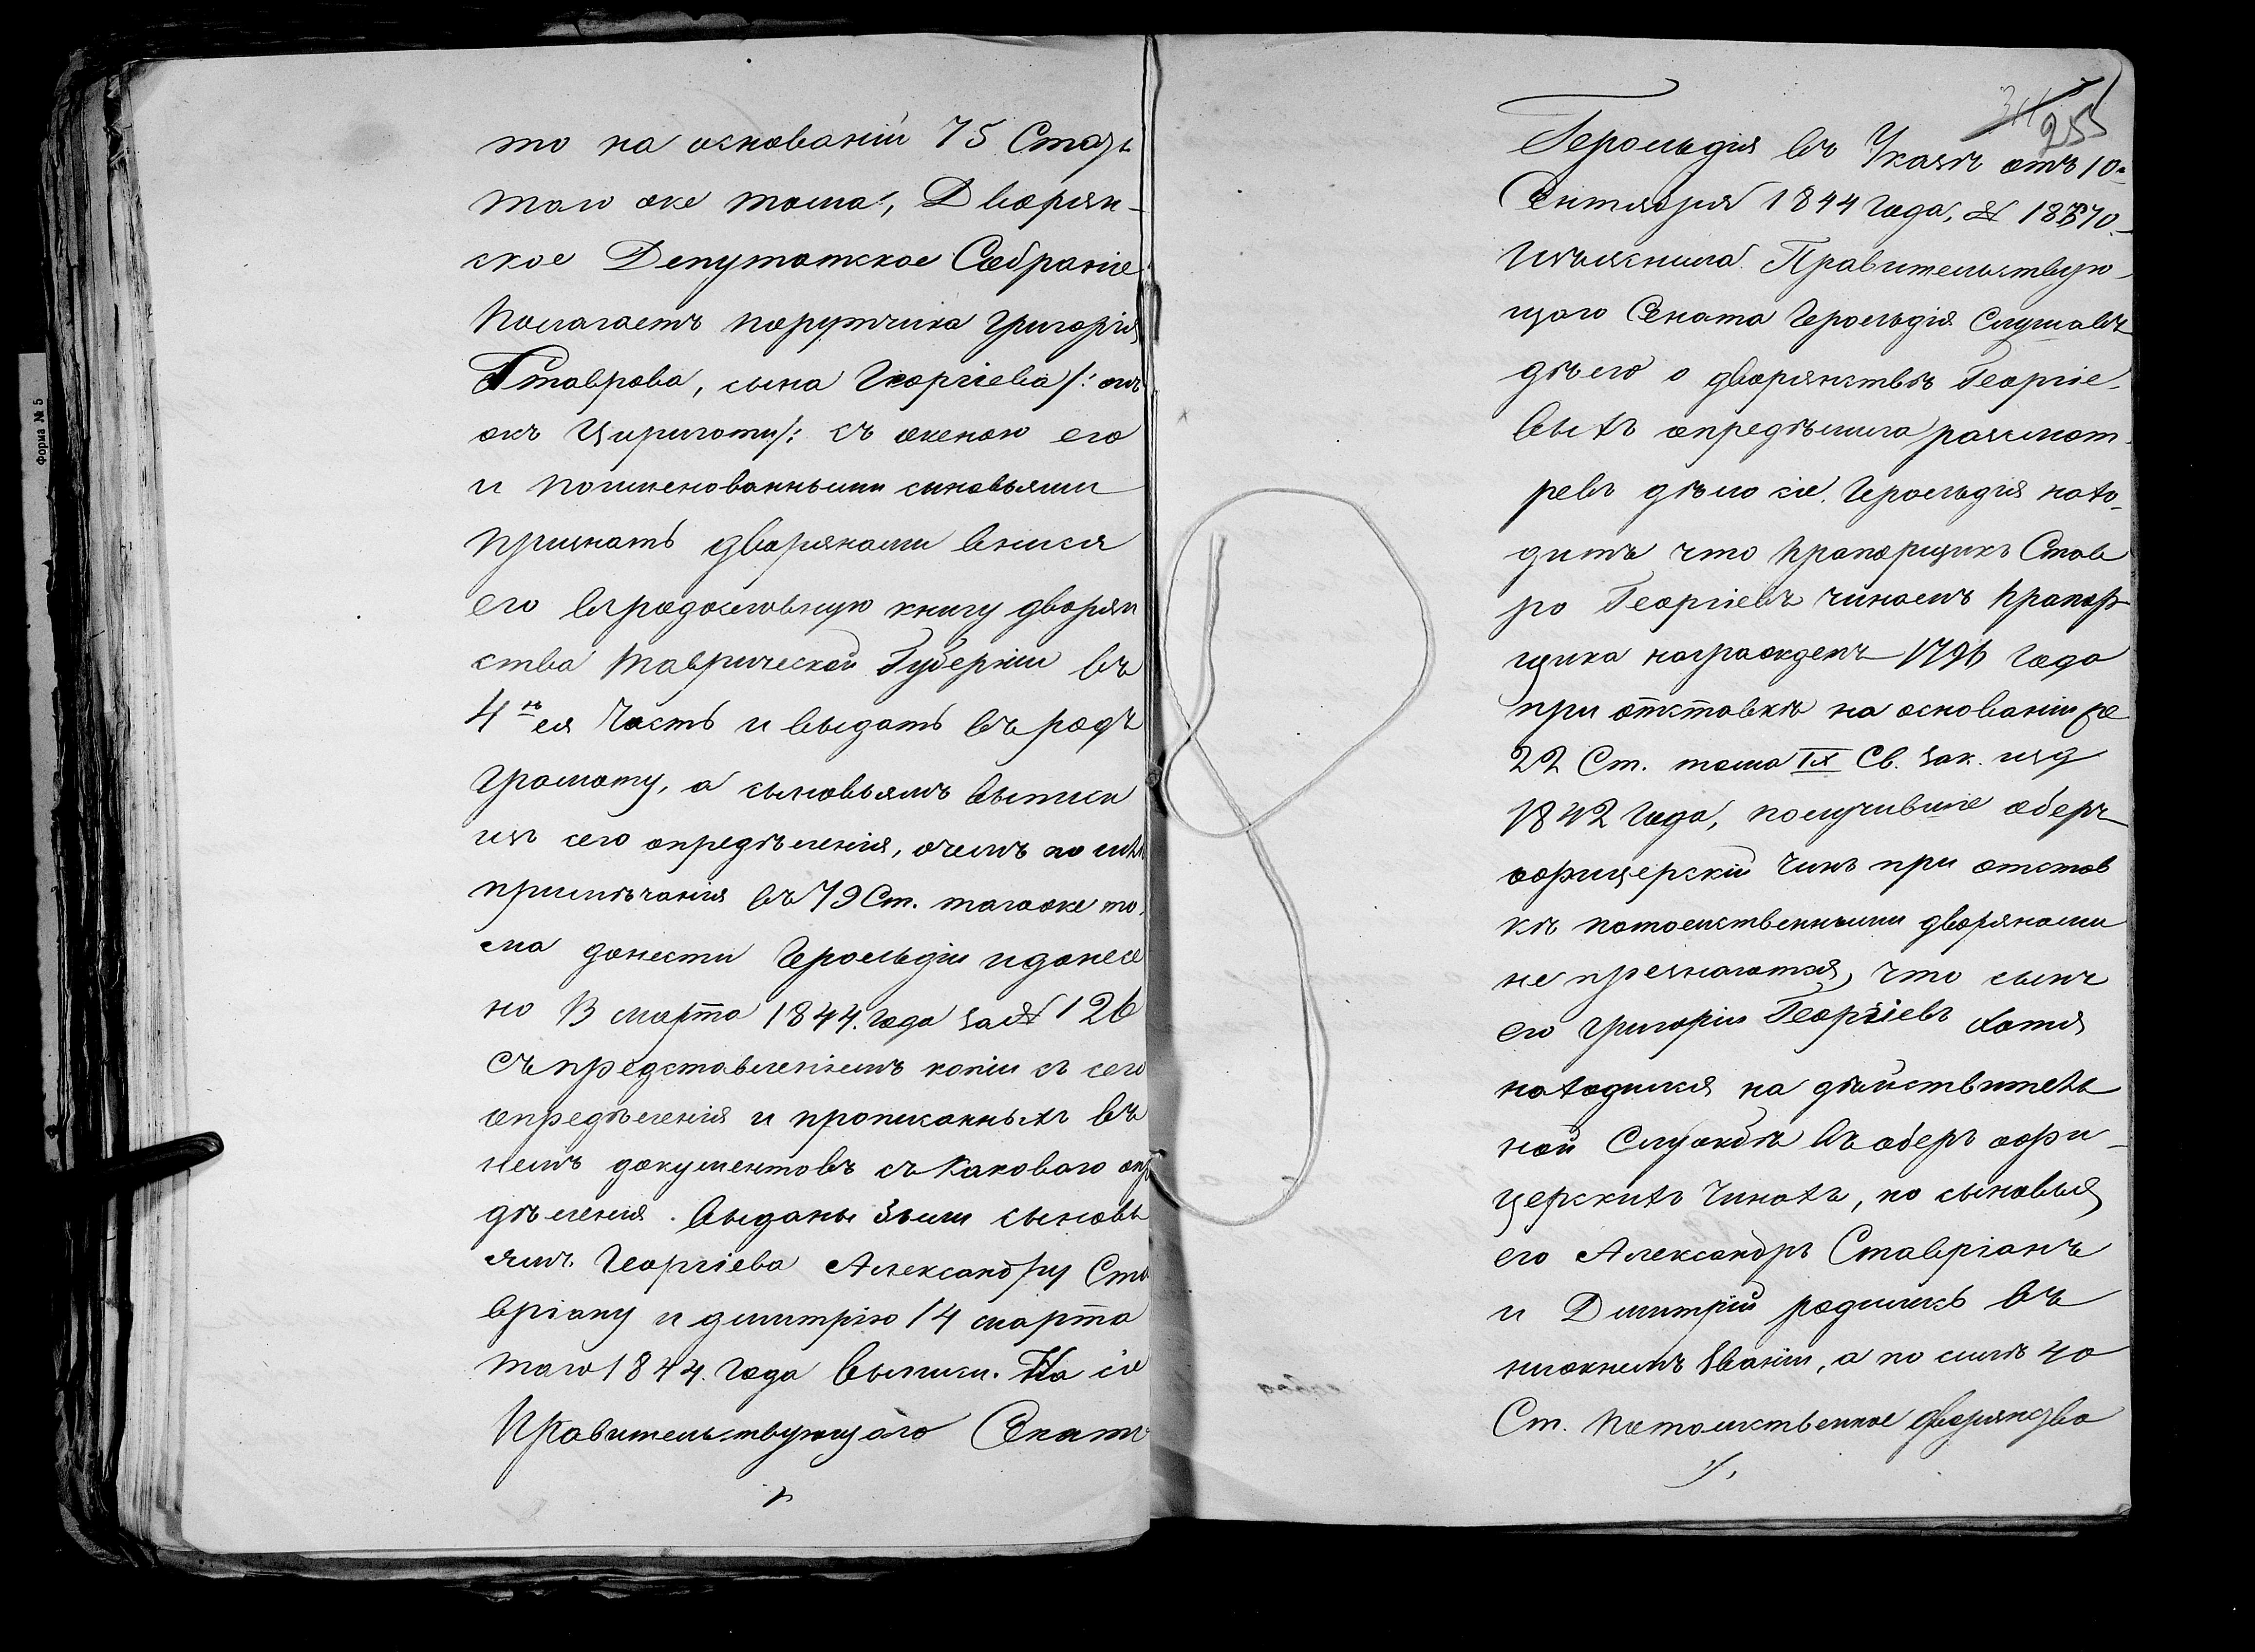 то на основаніи 75 Стать
того же тома, Дворян-
ское Депутатское Собраніе
Полагаетъ поручика Григорія
Ставрова, сына Георгіева /: онъ
жъ Цириготи/: съ женою его
и поименованными сыновьями
признать дворянами внися
его въ родословную книгу дворян
ства Таврической Губерніи въ
4ю ея Часть и выдать въ родъ
грамоту, а сыновьямъ выписи
изъ сего опредѣленія, очемъ по силѣ
примѣчанія въ 79 Ст. тогоже то-
ма донести Герольдіи и донесе
но 13 марта 1844. года за № 126
Съ представленіемъ копіи съ сего
опредѣленія и прописанныхъ въ
немъ документовъ съ Каковаго опр
дѣленія. Выданы 3ьим сыновь
ямъ. Георгіева Александру Ста
вріану и дмитрію 14 марта
того 1844. года Выписи. На сіе
Правительствующаго Сената
Форма № 5
311
255
Герольдія въ Указѣ отъ 10-
Сентября 1844 года, № 18570.
Изъяснила Правительствую-
щаго Сената Герольдія Слушавъ
дѣло о дворянствѣ Георгіе-
выхъ опредѣлила разсмот-
ревъ дѣло сіе. Герольдія нахо-
дитъ что прапорщикъ Став
ро Георгіевъ чиномъ прапор
щика награжденъ 1796 года
при отставкѣ на основаніи же
22 Ст. тома IX Св. зак. изд
1842 года, получившіе оберъ
офицерскій Чинъ при отстав
кѣ потомственными дворянами
не презнаются, что сынъ
его Григорій Георгіевъ Хотя
находился на дѣйствитель
ной Службѣ въ оберъ офи-
церскихъ Чинахъ, но сыновья
его Александръ Ставріанъ
и Дмитрій родились въ
нижнемъ званіи, а по силѣ 40
Ст. Потомственное дворянство